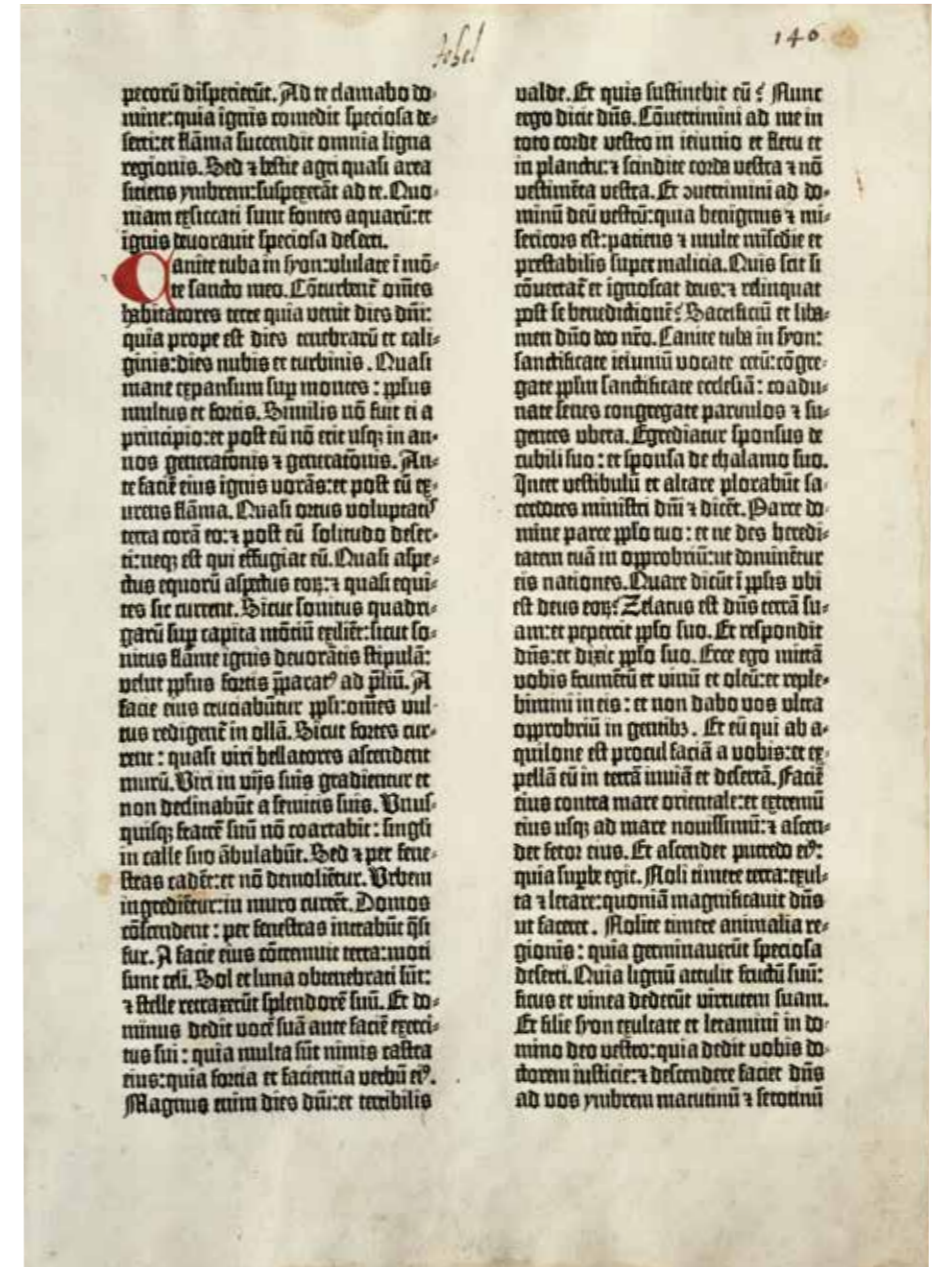 Johel
146
pecorū disperierūt. Ad te clamabo do-
mine: quia ignis comedit speciosa de-
serti: et flāma succendit omnia ligna
regionis. Sed ⁊ bestie agri quasi area
sitiens ymbrem: suspexerāt ad te. Quo-
niam exsiccati sunt fontes aquarū: et
ignis devorauit speciosa deserti.
Canite tuba in syon: ululate ī mō-
te sancto meo. Cōturbent̄ om̄es
habitatores terre quia venit dies dn̄i:
quia prope est dies tenebrarū et cali-
ginis: dies nubis et turbinis. Quasi
mane expansum sup montes: pp̄lus
multus et fortis. Similis nō fuit ei a
principio: et post eū nō erit usqꝫ in an-
nos generatōnis ⁊ generatōnis. An-
te faciē eius ignis vorās: et post eū ex-
urens flāma. Quasi ortus voluptatiꝰ
terra corā eo: ⁊ post eū solitudo deser-
ti: neqꝫ est qui effugiat eū. Quasi aspe-
ctus equorū aspectus eoꝝ: ⁊ quasi equi-
tes sic current. Sicut sonitus quadri-
garū sup capita mōtiū exiliēt: sicut so-
nitus flāme ignis deuorātis stipulā:
velut pp̄lus fortis p̄paratꝰ ad p̄liū. A
facie eius cruciabūtur pp̄li: om̄es vul-
tus redigent̄ in ollā. Sicut fortes cur-
rent: quasi viri bellatores ascendent
murū. Viri in vijs suis gradientur et
non declinabūt a semitis suis. Vnus-
quisqꝫ fratrē suū nō coartabit: singli
in calle suo ābulabūt. Sed ⁊ per fene-
stras cadēt: et nō demoliētur. Vrbem
ingrediētur: in muro currēt. Domos
cōscendent: per fenestras intrabūt q̄si
fur. A facie eius cōtremuit terra: moti
sunt celi. Sol et luna obtenebrati sūt:
⁊ stelle retraxerūt splendorē suū. Et do-
minus dedit vocē suā ante faciē exerci-
tus sui: quia multa sūt nimis castra
eius: quia fortia et facientia verbū eiꝰ.
Magnus enim dies dn̄i: et terribilis
valde. Et quis sustinebit eū? Nunc
ergo dicit dn̄s. Cōuertimini ad me in
toto corde vestro in ieiunio et fletu et
in planctu: ⁊ scindite corda vestra ⁊ nō
vestimēta vestra. Et ↄuertimini ad do-
minū deū vestrū: quia benignus ⁊ mi-
sericors est: patiens ⁊ multe misc̄die et
prestabilis super malicia. Quis scit si
cōuertat̄ et ignoscat deus: ⁊ relinquat
post se benedictionē? Sacrificiū et liba-
men dn̄o deo nr̄o. Canite tuba in syon:
sanctificate ieiuniū vocate cetū: cōgre-
gate pp̄lm sanctificate ecclesiā: coadu-
nate senes congregate paruulos ⁊ su-
gentes ubera. Egrediatur sponsus de
cubili suo: et sponsa de thalamo suo.
Inter vestibulū et altare plorabūt sa-
cerdotes ministri dn̄i ⁊ dicēt. Parce do-
mine parce pp̄lo tuo: et ne des heredi-
tatem tuā in opprobriū: ut dominētur
eis nationes. Quare dicūt ī pp̄lis ubi
est deus eoꝝ? Zelatus est dn̄s terrā su-
am: et pepercit pp̄lo suo. Et respondit
dn̄s: et dixit pp̄lo suo. Ecce ego mittā
vobis frumētū et vinū et oleū: et reple-
bimini in eis: et non dabo vos ultra
opprobriū in gentibꝫ. Et eū qui ab a-
quilone est procul faciā a vobis: et ex-
pellā eū in terrā inuiā et desertā. Faciē
eius contra mare orientale: et extremū
eius usqꝫ ad mare nouissimū: ⁊ ascen-
det fetor eius. Et ascendet putredo eiꝰ:
quia supbe egit. Noli timere terra: exul-
ta ⁊ letare: quoniā magnificauit dn̄s
ut faceret. Nolite timere animalia re-
gionis: quia germinauerūt speciosa
deserti. Quia lignū attulit fructū suū:
ficus et vinea dederūt virtutem suam.
Et filie syon exultate et letamini in do-
mino deo vestro: quia dedit vobis do-
ctorem iusticie: ⁊ descendere faciet dn̄s
ad vos ymbrem matutinū ⁊ serotinū